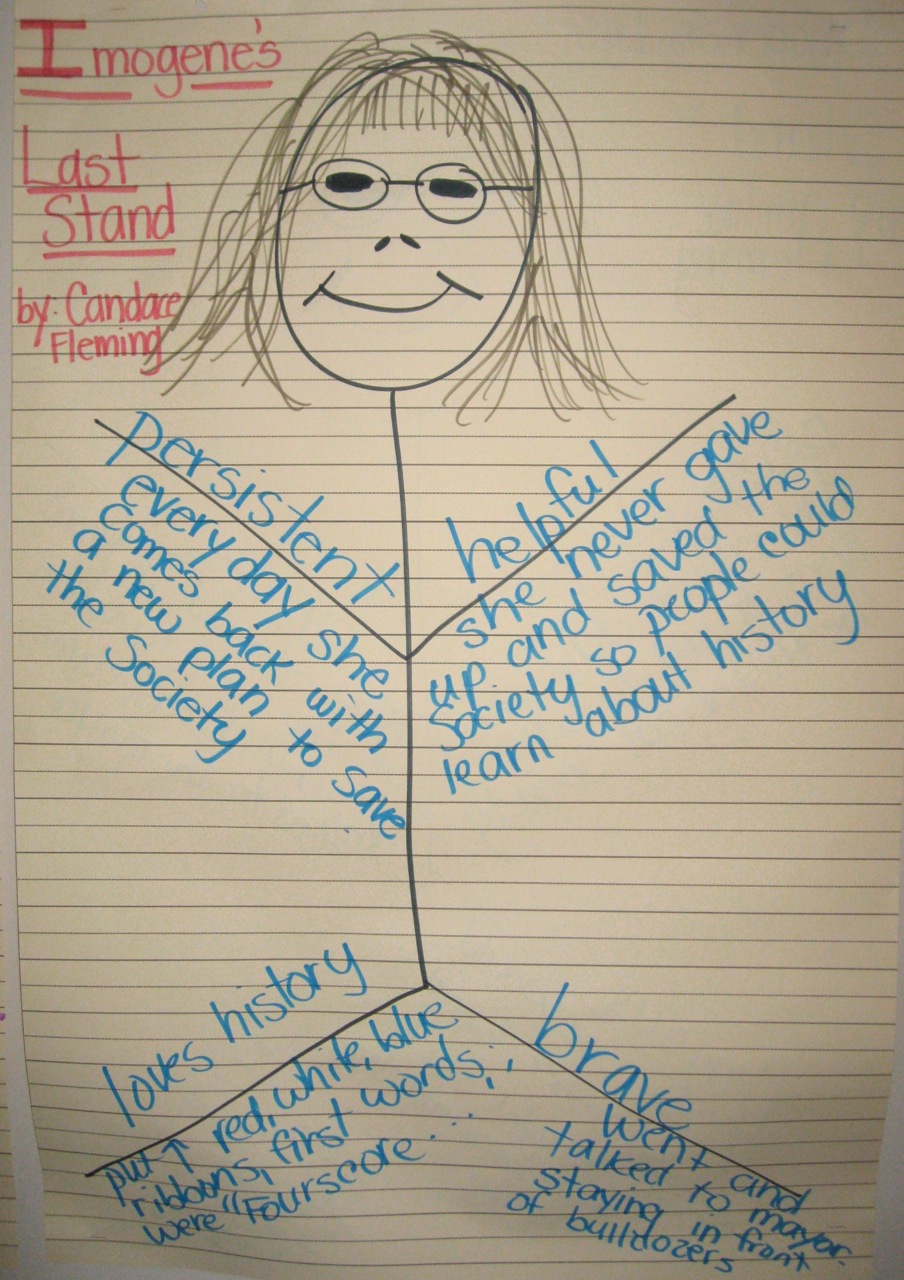 Imogene's
Last
Stand
by: Candace
Fleming
persistent
every day she
comes back with
a new plan to save
the Society
helpful
she never gave
up and saved the
Society so people could
learn about history
loves history
put ↑ red, white, blue
ribbons, first words,
were "Fourscore...
brave
went and
talked to mayor.
staying in front
of bulldozers